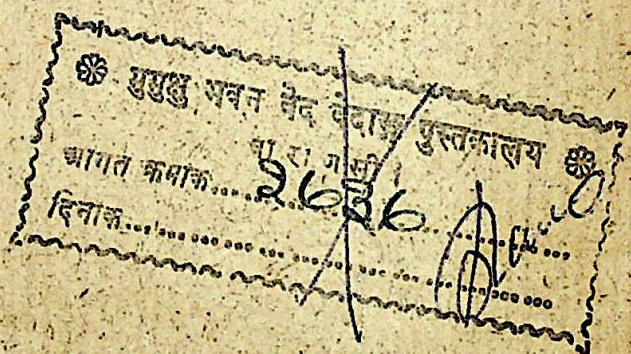 मुमुक्षु भवन वेद वेदाङ्ग पुस्तकालय
वा रा ण सी ।
आगत क्रमांक........................
दिनांक........................